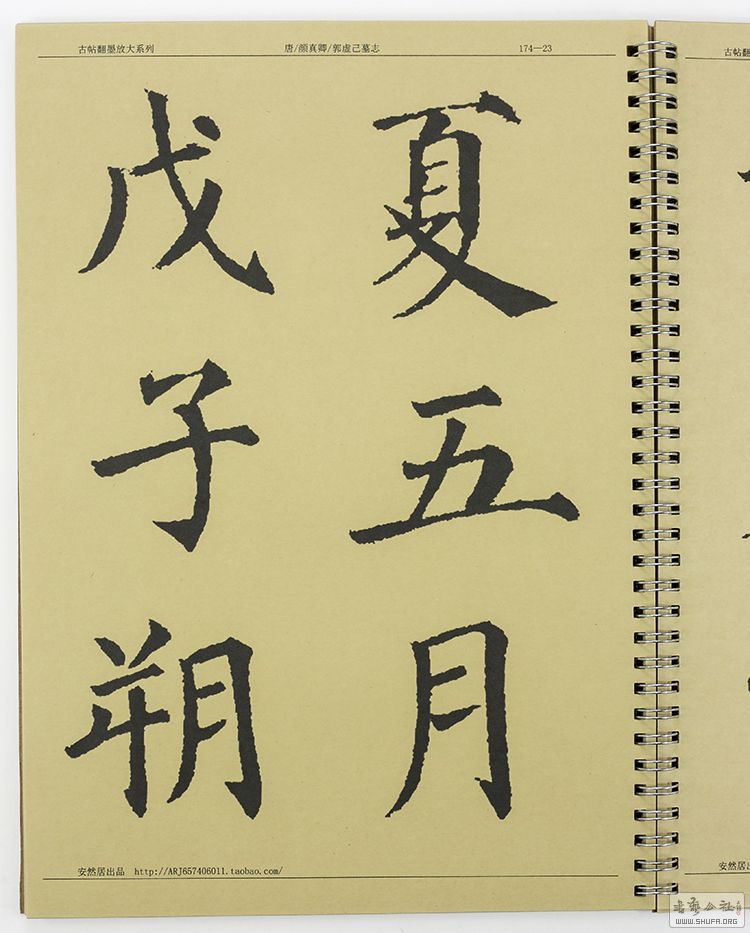 古帖翻墨放大系列 唐/颜真卿/郭虚己墓志 174—23
夏五月
戊子朔
安然居出品 http://ARJ657406011.taobao.com/
古帖翻
安然居出
WWW.SHUFA.ORG